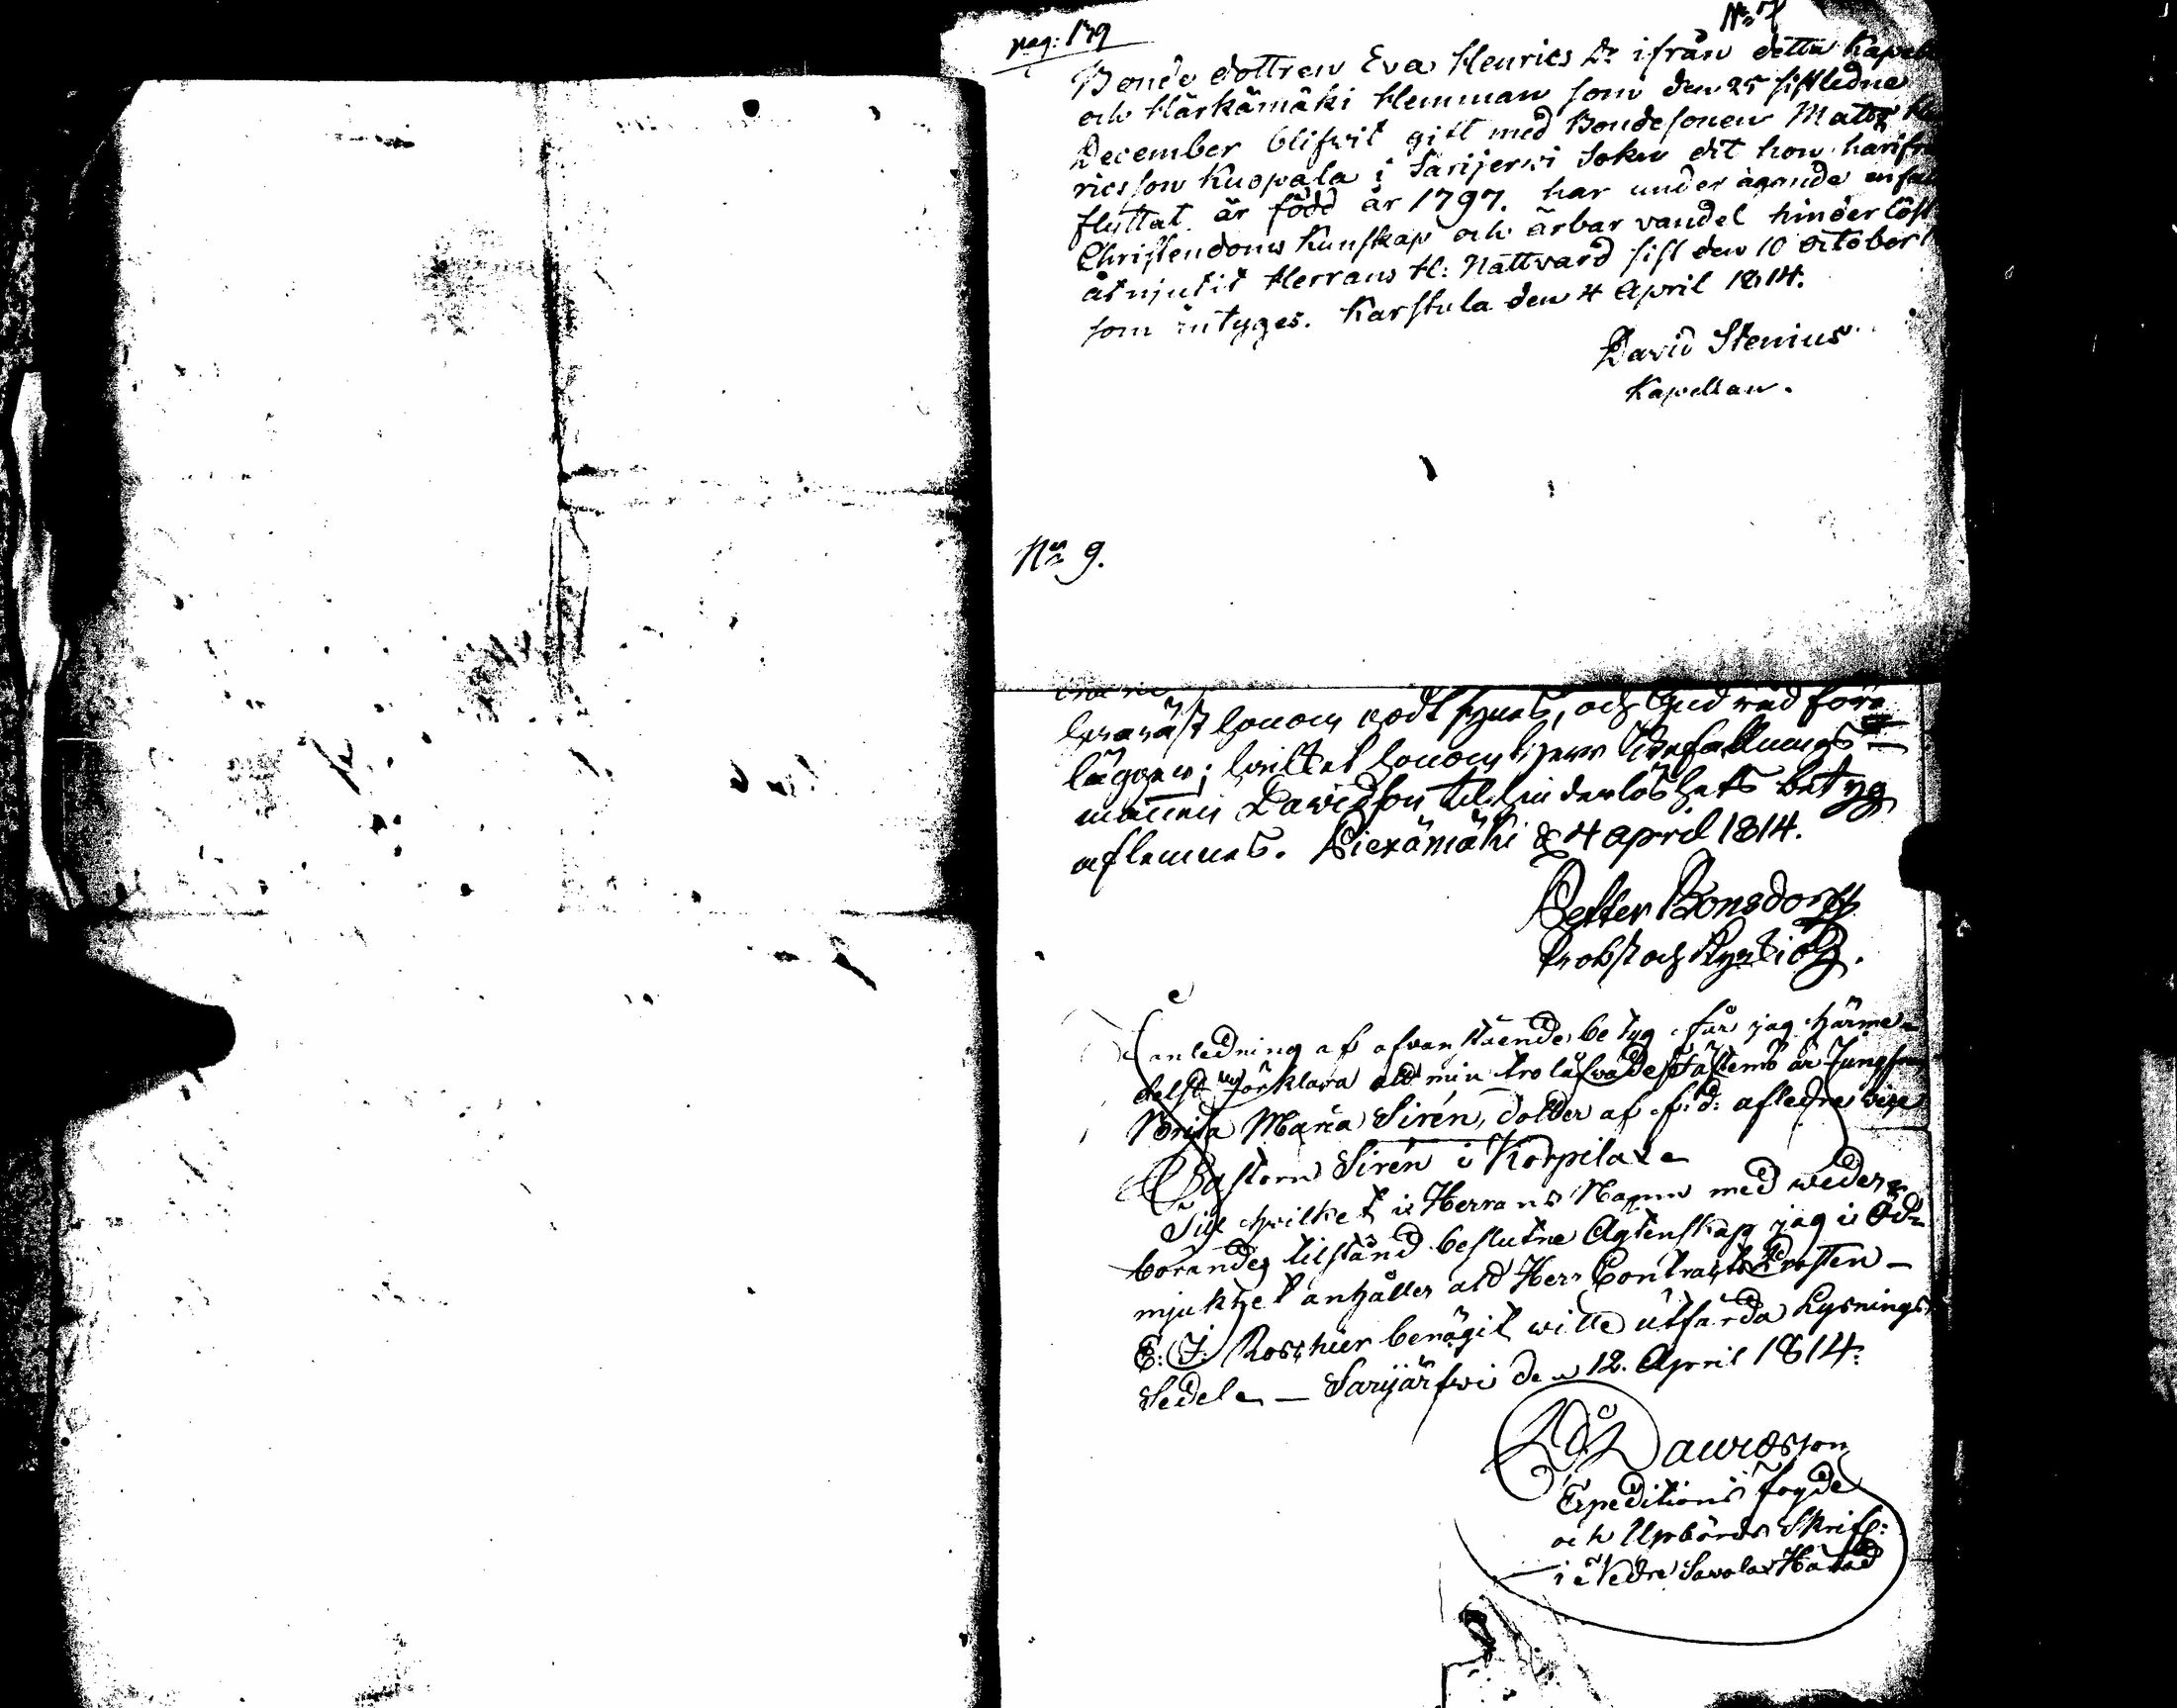 pag: 139
No 7
Bonde dottren Eva Henrics Dr ifrån detta Kapell
och Härkämäki Hemman som den 25 sistledne
December blifvit gift med Bondesonen Matts
ricsson Kuopala i Sarijerwi Sokn dit hon härifrån
flyttat är född år 1797. har under ägande
Christendoms Kunskap och ärbar vandel hinderlöst
åtnjutit Herrans H: Nattvard sist den 10 October
som intyges. Karstula den 4 April 1814.
David Stenius
Kapellan.
No 9.
honom godt synes, och Gud råd före
lägger; hvilket honom Herr Befallnings
mannen Davidson till hinderlöshets betyg
aflemnas. Piexämäki d 4 april 1814.
Petter Bonsdorff
Probst och Kyrkioh.
I anledning af ofvanstående betyg får jag härme-
delst förklara att min trolåfvade Fästemö är Jungfru
Brita Maria Sirén, dotter af f: d: afledne vice
Pastorn Sirén i Korpilax
Till hvilket i Herrans Namn med weder-
börandes tilstånd beslutne Ägtenskap jag i Öd-
mjukhet anhåller att Herr Contracts Prosten
E: J: Roschier benägit wille utfärda Lysnings
Sedel - Sarijärfwi den 12. April 1814.
Dawidsson
Expeditions fogde
och Upbörds Skrifv:
i Nedre Savolax Härad